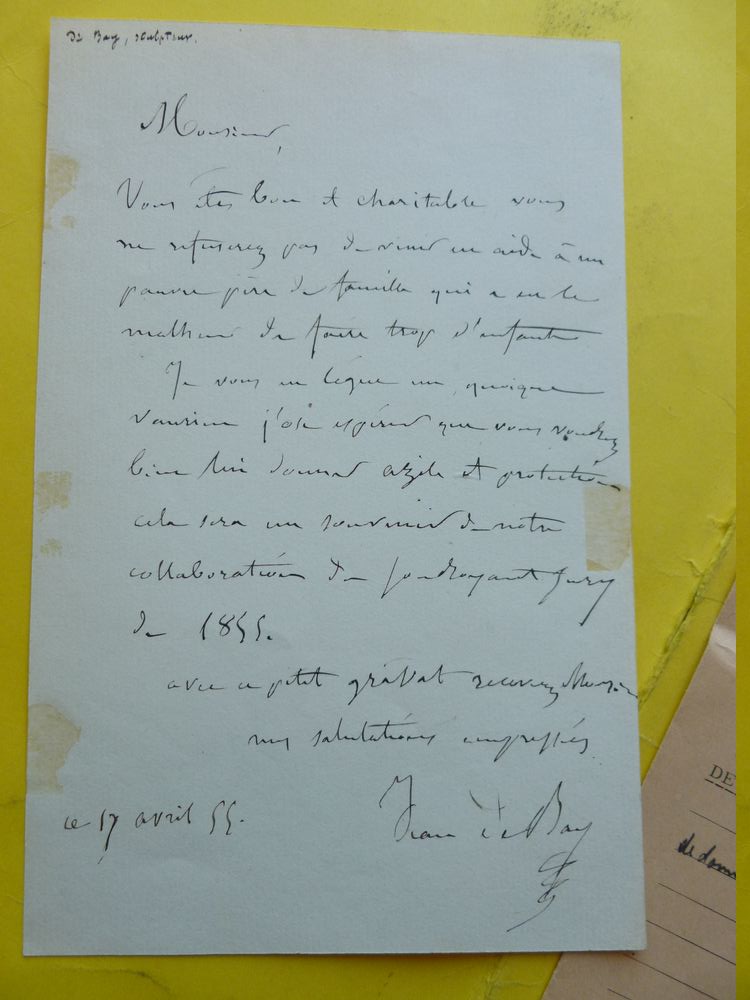 De Bay, sculpteur.
Monsieur,
Vous êtes bon et charitable vous
ne refuserez pas de venir en aide à un
pauvre père de famille qui a eu le
malheur de faire trop d'enfants
Je vous en lègue un, quoique
vaurien j'ose espérer que vous voudrez
bien lui donner azile et protection
cela sera un souvenir de notre
collaboration du foudroyant Jury
de 1855.
avec ce petit gravat recevez Monsieur
mes salutations empressées
Jean De Bay
ce 17 avril 55.
DE
de dom